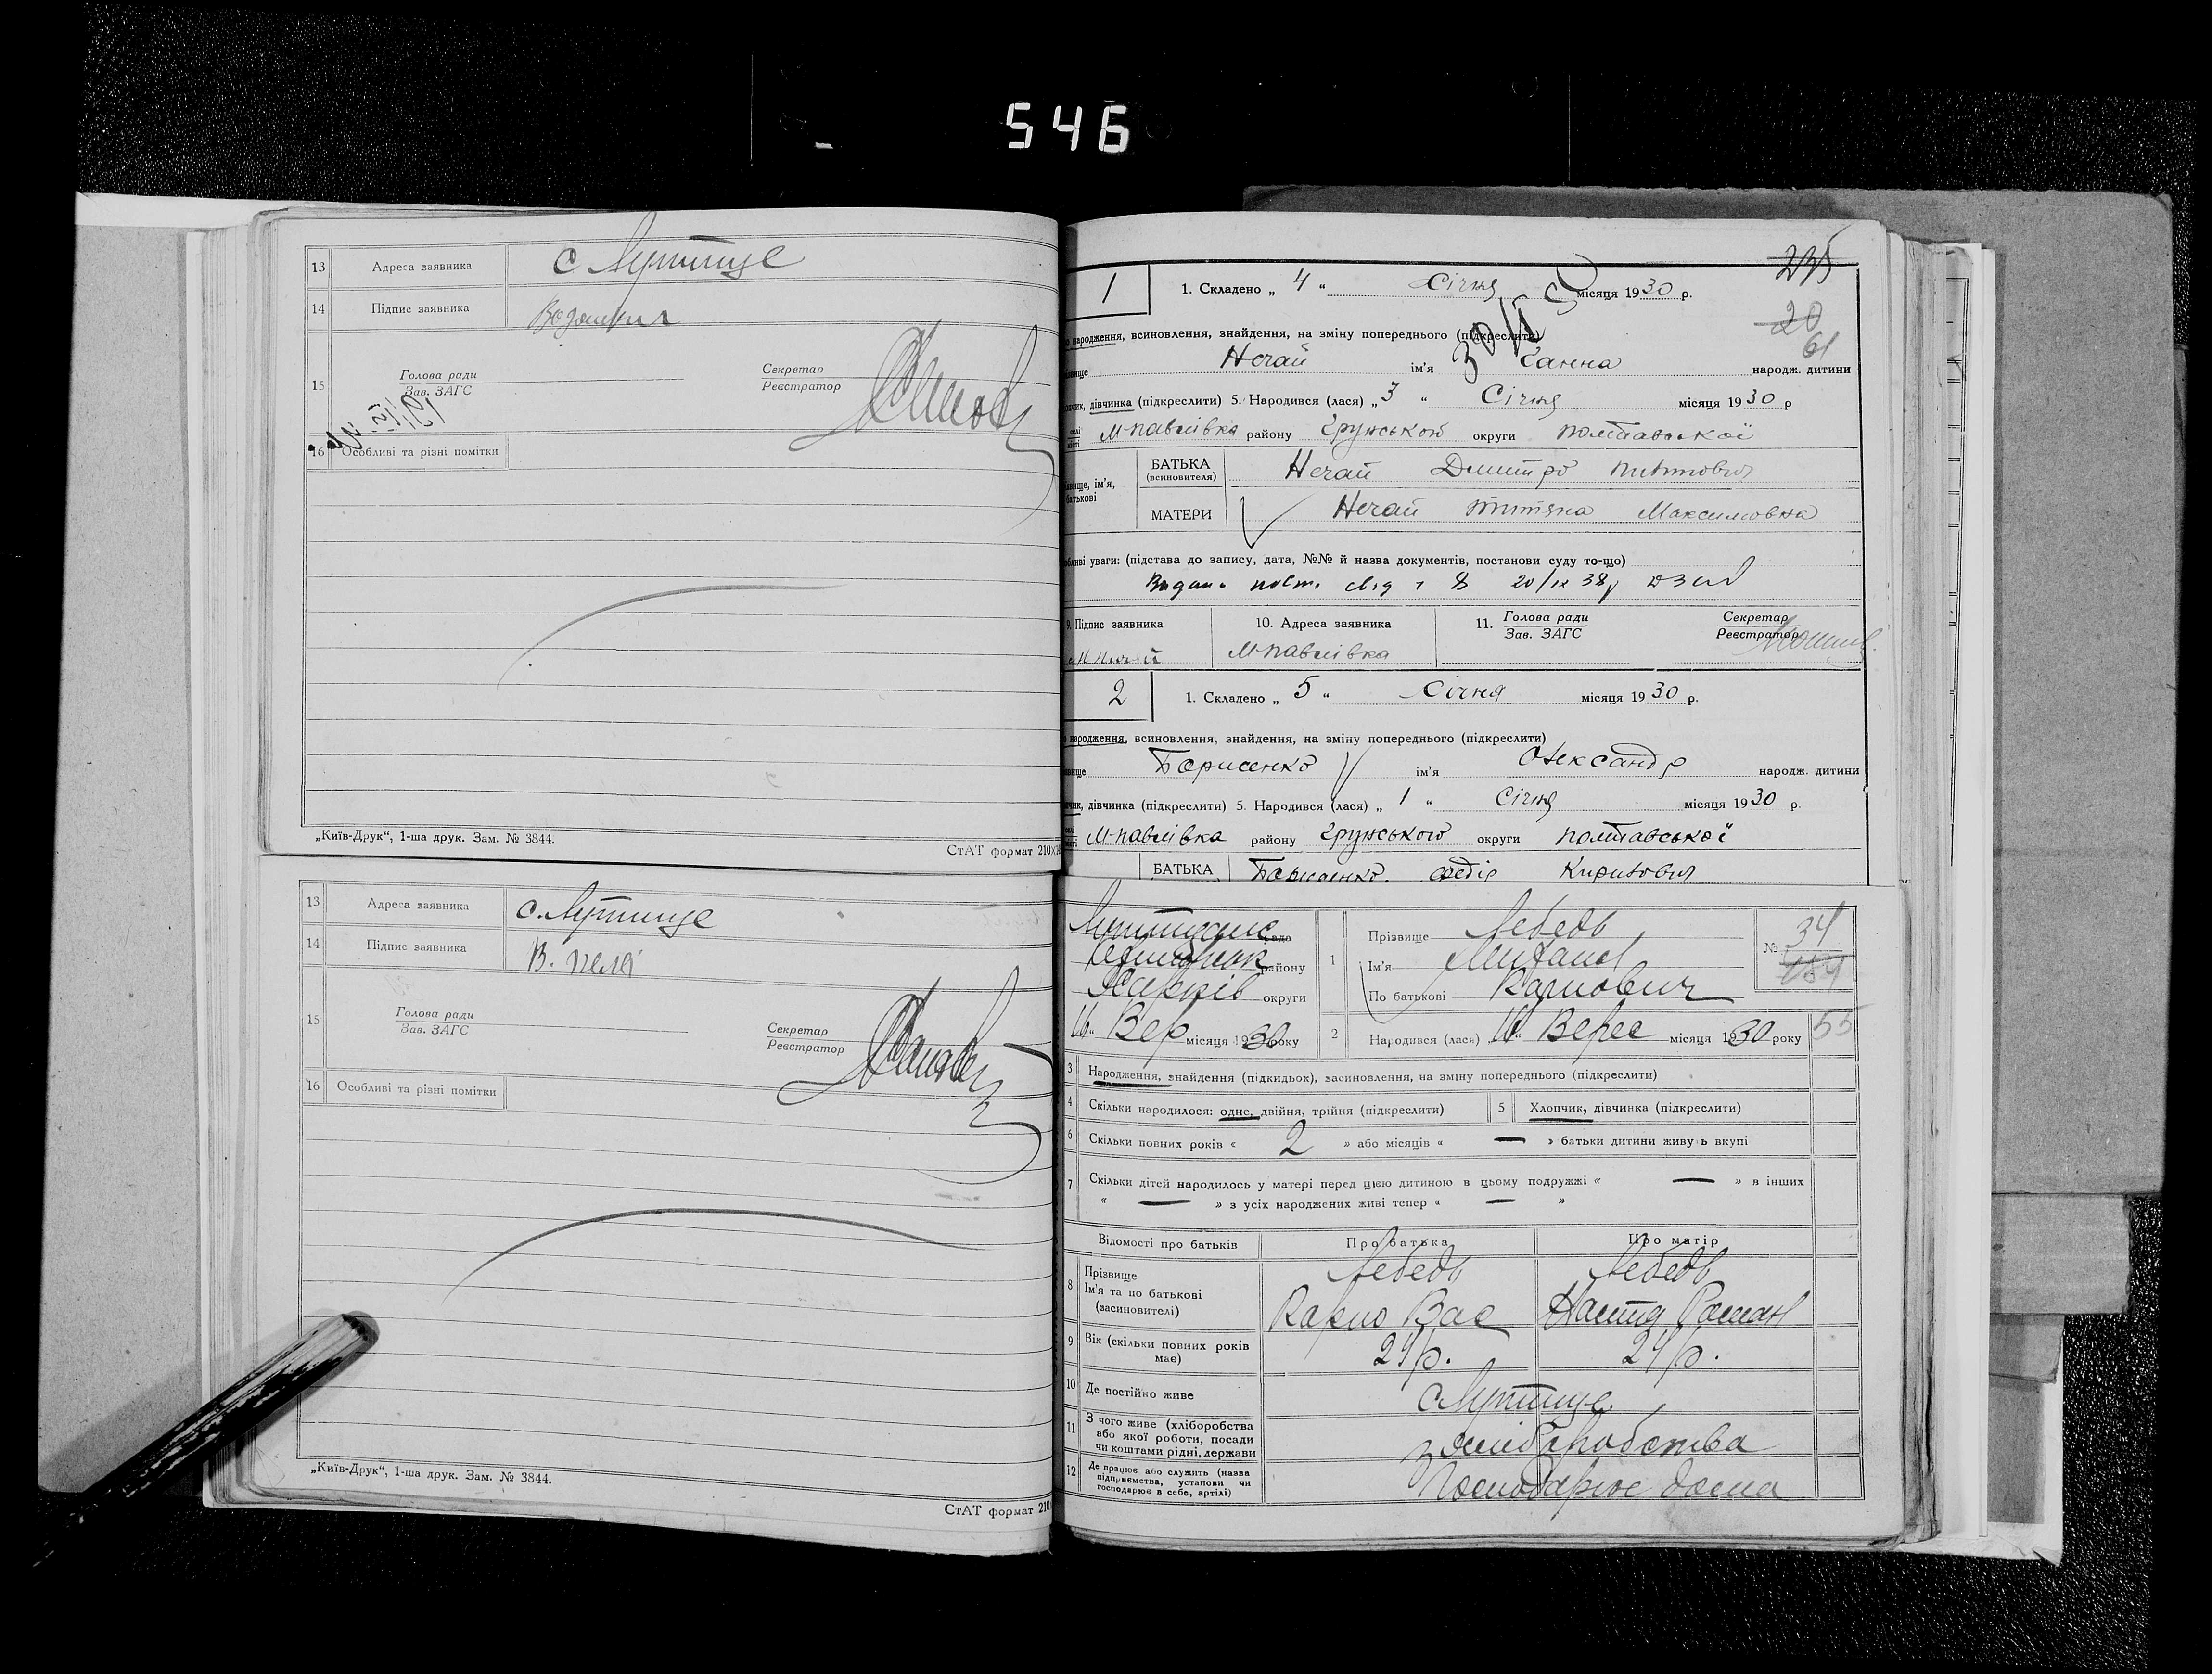 546
13 Адреса заявника с Лутище
14 Підпис заявника
15 Голова ради Зав. ЗАГС Секретар Реєстратор
16 Особливі та різні помітки
„Київ-Друк“, 1-ша друк. Зам. № 3844.
СтАТ формат 210
13 Адреса заявника с. Лутище
14 Підпис заявника В.
15 Голова ради Зав. ЗАГС Секретар Реєстратор
16 Особливі та різні помітки
„Київ-Друк“, 1-ша друк. Зам. № 3844.
СтАТ формат 210
235
20
61
1 1. Складено „ 4 “ Січня місяця 1930 р.
народження, всиновлення, знайдення, на зміну попереднього (підкреслити)
Нечай ім'я Ганна народж. дитини
дівчинка (підкреслити) 5. Народився (лася) „ 3 “ Січня місяця 1930 р
М-Павлівка району Грунського округи Полтавської
ім'я, батькові БАТЬКА (всиновителя) Нечай Дмитро
МАТЕРИ Нечай Максимовна
уваги: (підстава до запису, дата, №№ й назва документів, постанови суду то-що)
20/IX 38р
9. Підпис заявника 10. Адреса заявника 11. Голова ради Зав. ЗАГС Секретар Реєстратор
М-Павлівка
2 1. Складено „ 5 “ Січня місяця 1930 р.
народження, всиновлення, знайдення, на зміну попереднього (підкреслити)
Борисенко ім'я Олександр народж. дитини
дівчинка (підкреслити) 5. Народився (лася) „ 1 “ Січня місяця 1930 р.
М-Павлівка району Грунського округи Полтавської
БАТЬКА Борисенко Федір Кирилович
рада
району
Харків округи
16 Вер місяця 1930 року
1 Прізвище Лебедь
Ім'я
По батькові Карпович
№ 34
2 Народився (лася) Верес місяця 1930 року 55
3 Народження, знайдення (підкидьок), засиновлення, на зміну попереднього (підкреслити)
4 Скільки народилося: одне, двійня, трійня (підкреслити) 5 Хлопчик, дівчинка (підкреслити)
6 Скільки повних років « 2 » або місяців « — » батьки дитини живуть вкупі
7 Скільки дітей народилось у матері перед цією дитиною в цьому подружжі « — » в інших
« — » з усіх народжених живі тепер « — »
Відомості про батьків Про батька Про матір
8 Прізвище Ім'я та по батькові (засиновителі) Лебедь Карпо Вас Лебедь Настя Роман
9 Вік (скільки повних років має) 24р. 24р.
10 Де постійно живе с Лутище
11 З чого живе (хліборобства або якої роботи, посади чи коштами рідні, держави з хліборобства
12 Де працює або служить (назва підприємства, установи чи господарює в себе, артілі) Господарює дома